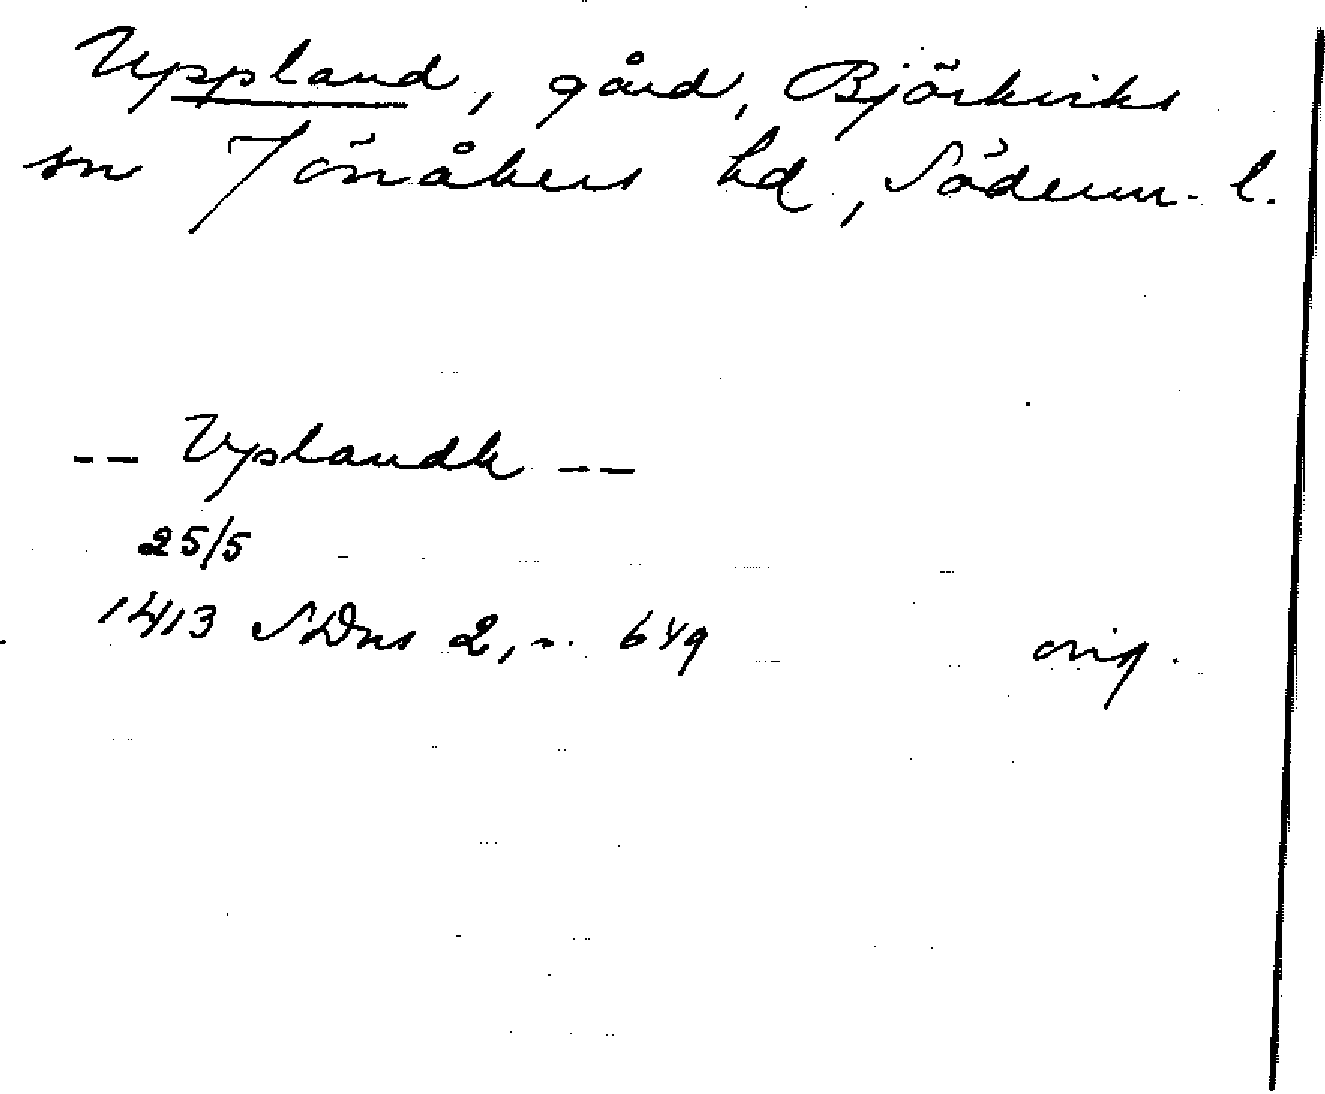 Uppland, gård, Björkviks
sn Jönåkers hd, Söderm. l.
-- Vplandh --
25/5
1413 SDns 2, s. 649
orig.